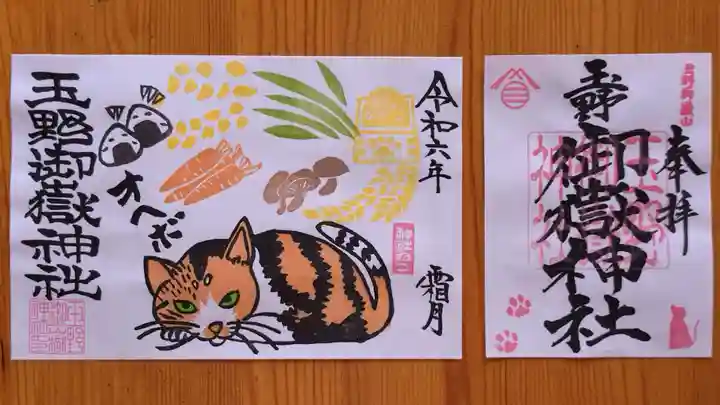 令和六年
霜月
オヘボ
玉野御嶽神社
奉拝
玉野
御嶽神社